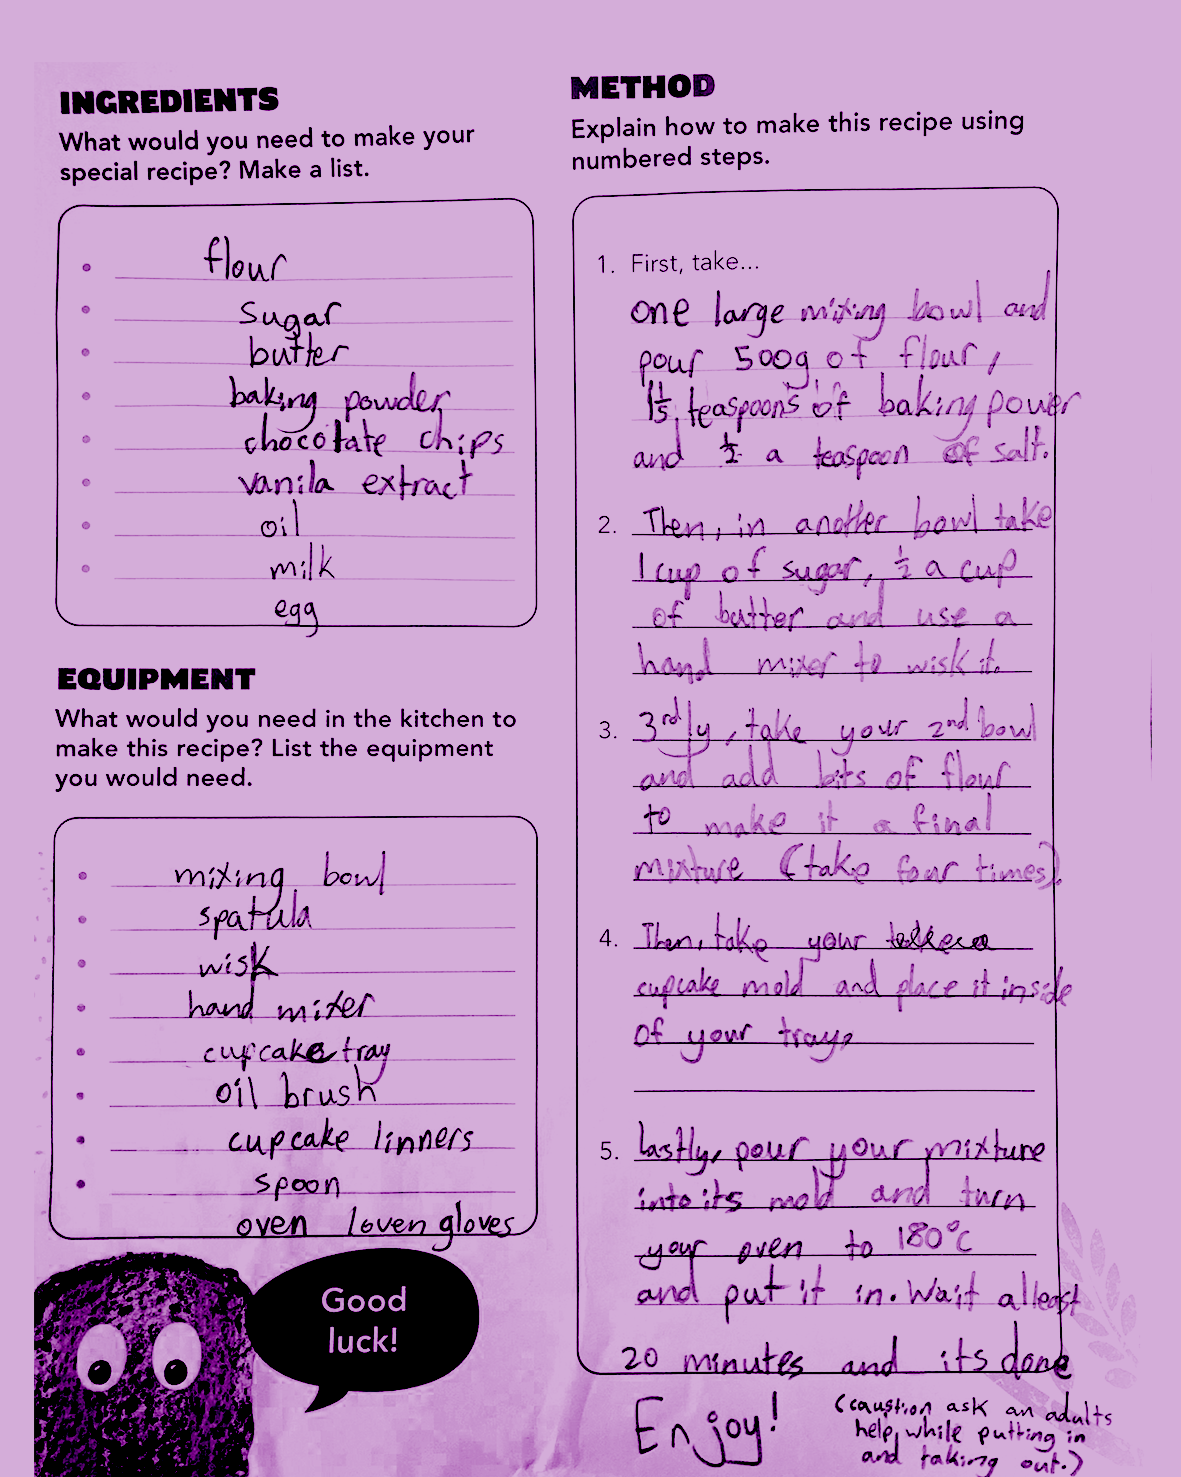 INGREDIENTS
What would you need to make your
special recipe? Make a list.
flour
sugar
butter
baking powder
chocolate chips
vanila extract
oil
milk
egg
EQUIPMENT
What would you need in the kitchen to
make this recipe? List the equipment
you would need.
mixing bowl
spatula
wisk
hand mixer
cupcake tray
oil brush
cupcake linners
spoon
oven / oven gloves
Good
luck!
METHOD
Explain how to make this recipe using
numbered steps.
1. First, take...
one large mixing bowl and
pour 500g of flour,
1½ teaspoons of baking power
and ½ a teaspoon of salt.
2. Then, in another bowl take
1 cup of sugar, ½ a cup
of butter and use a
hand mixer to wisk it.
3. 3rdly, take your 2nd bowl
and add bits of flour
to make it a final
mixture (take four times).
4. Then, take your
cupcake mold and place it inside
of your tray.
5. Lastly, pour your mixture
into its mold and turn
your oven to 180°C
and put it in. Wait atleast
20 minutes and its done
Enjoy!
(caustion ask an adults
help, while putting in
and taking out.)